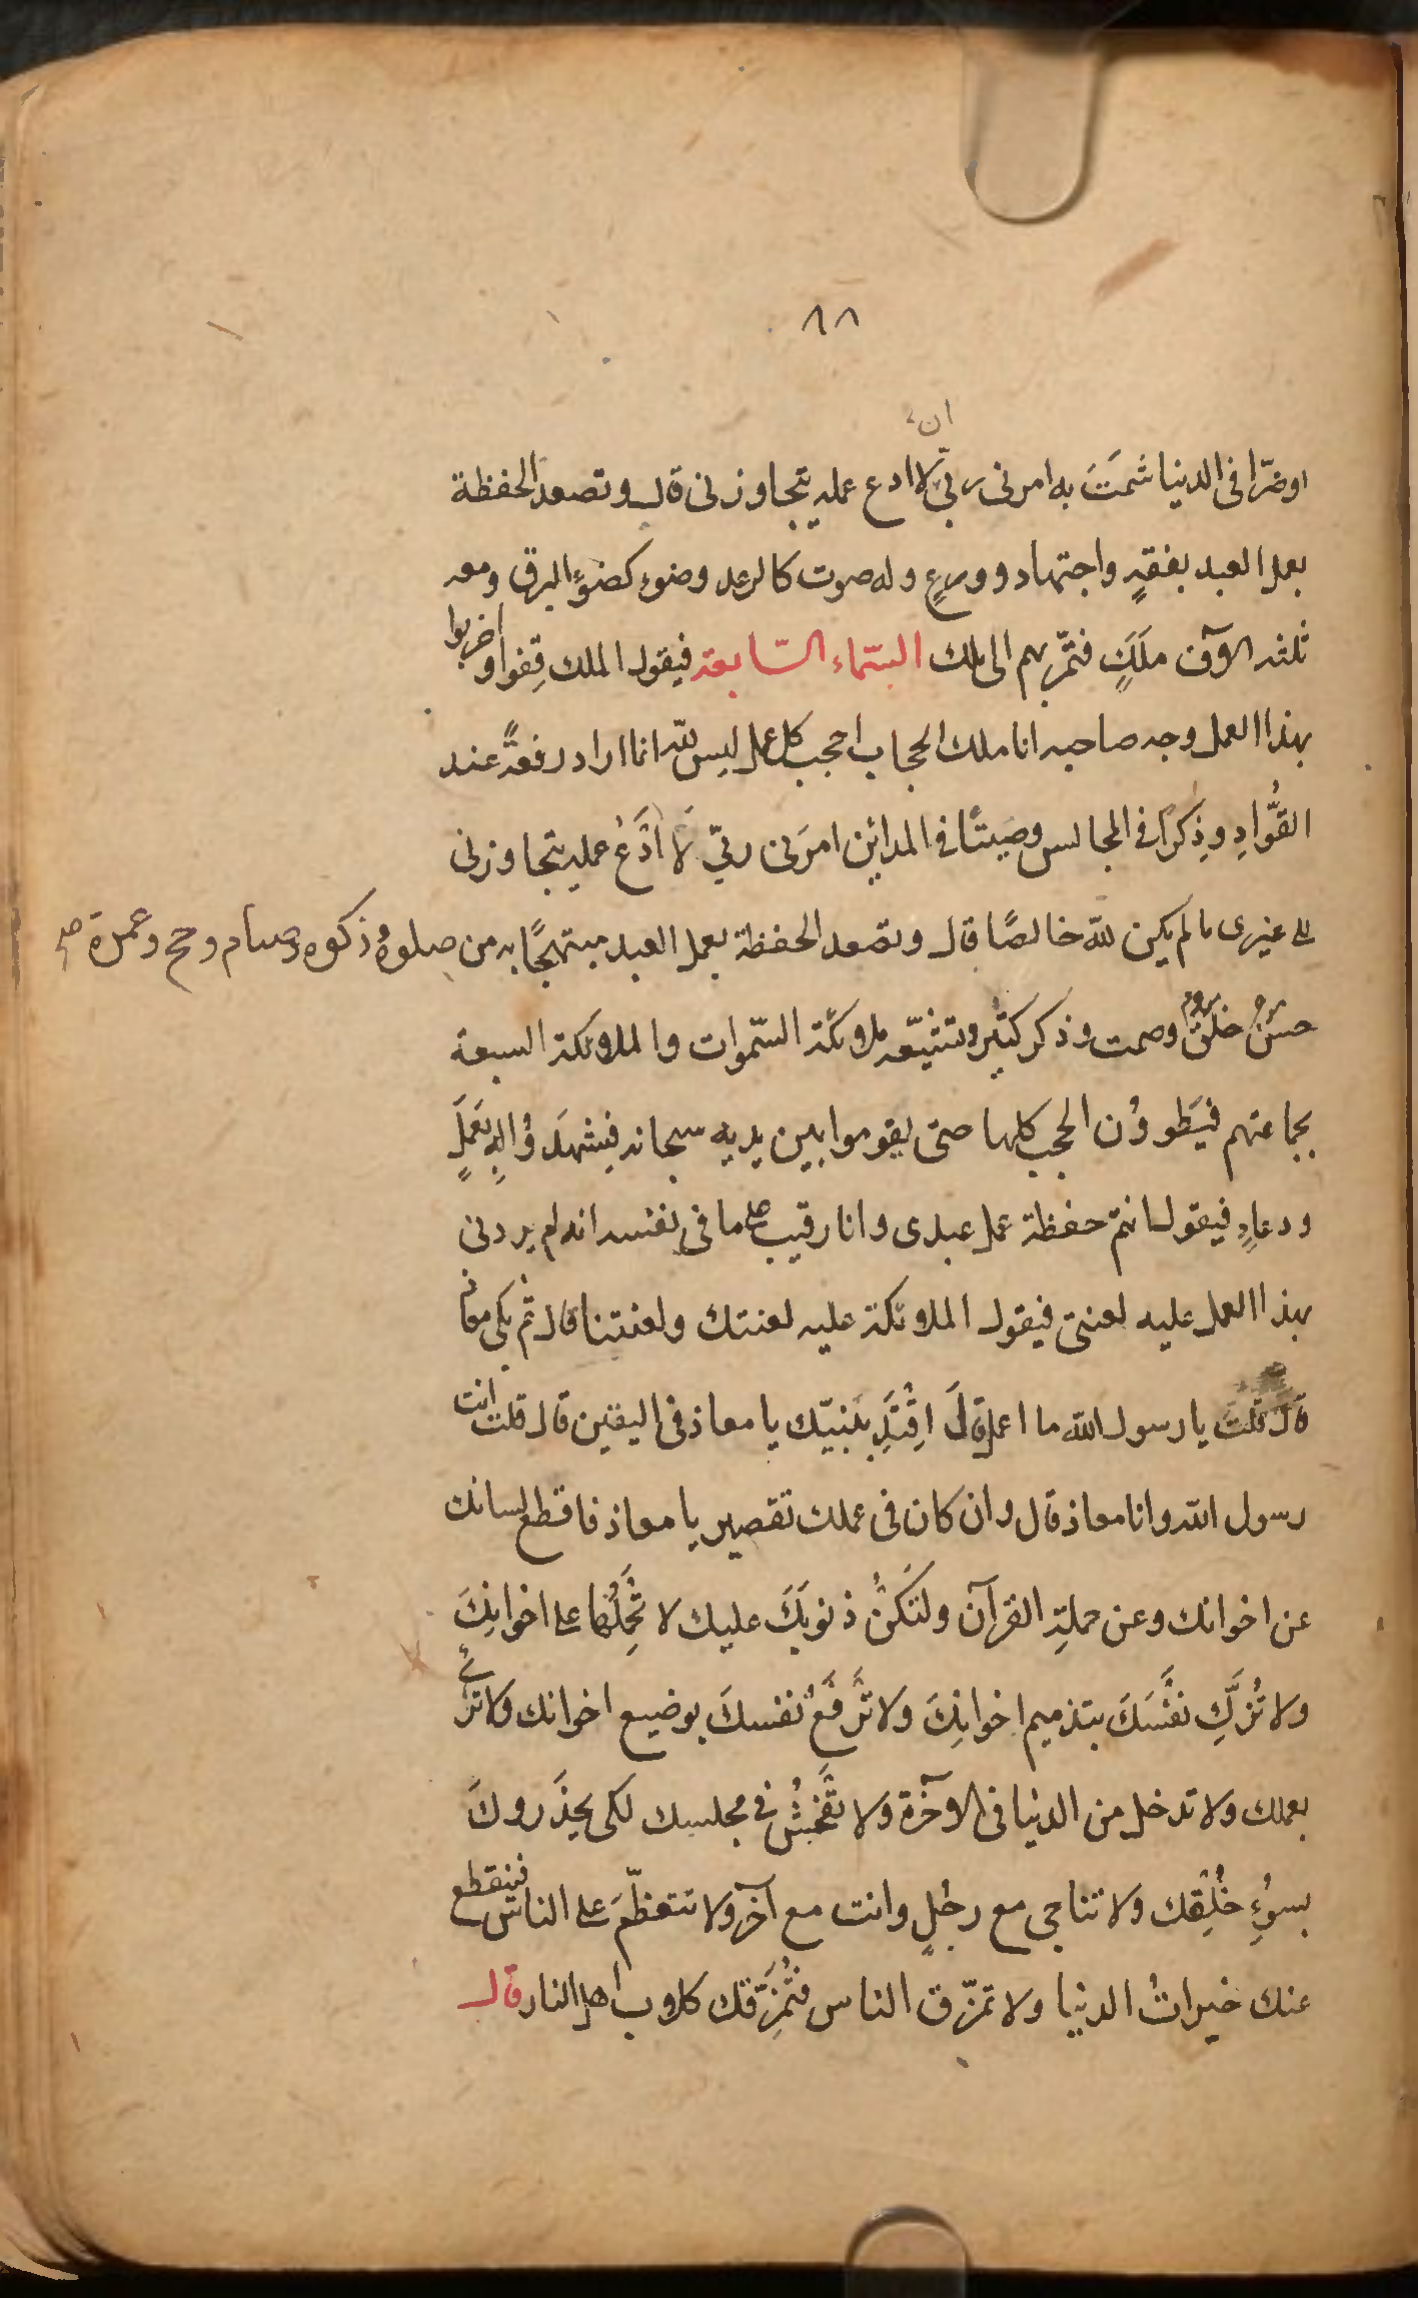 ٨٨
ان
او ضرّا فى الدنيا شَمَتَ به امرنى ربى لا ادع عمله يتجاوزنى قال وتصعد الحفظة
بعمل العبد بفقهٍ واجتهاد وورعٍ وله صوت كالرعد وضوء كضوءِ البرق ومعه
ثلثه الآف ملَكٍ فتمّر بهم الى ملك السّماء السّابعة فيقول الملك قِفوا واضربوا
بهذا العمل وجه صاحبه انا ملك الحجاب احجب كل عمل ليس لله انا اراد رفعةً عند
القُوّادِ وذِكرًا فى المجالس وصيتًا فى المدائن امرَنى ربّى لَا ادَعُ عمله يتجاوزنى
الى غيرى ما لم يكن لله خالصًا قال وتصعد الحفظة بعمل العبد مبتهجًا به من صلوة وزكوة وصيام وحج وعمرة
حسنٍ خلقٍ وصمت وذكر كثير وتشيّعه ملائكة السّموات والملائكة السبعة
بجماعتهم فيَطوؤن الحجب كلها حتى يقوموا بين يديه سبحانه فيشهدَوُا له بعَملٍ
ودعاءٍ فيقول انتم حفظة عمل عبدى وانا رقيب على ما فى نفسه انه لم يردنى
بهذا العمل عليه لعنتى فيقول الملائكة عليه لعنتك ولعنتنا قال ثم بكى معاذ
قال قلت يا رسول الله ما اعمل قال اِقْتَدِ بنبيّك يا معاذ فى اليقين قال قلت انت
رسول الله وانا معاذ قال وان كان فى عملك تقصير يا معاذ فاقطع لسانك
عن اخوانك وعن حملةِ القرآن ولتَكُنْ ذنوبكَ عليك لا تُحَمِّلْها على اخوانِكَ
ولا تُزَكِّ نفسَكَ بتذميم اخوانِكَ ولا تَرْفَعْ نفسكَ بوضيع اخوانك ولا تُرَاءِ
بعملك ولا تدخل من الدنيا فى الآخرة ولا تَفْحَشْ فى مجلسك لكى يحذَروكَ
بسوُءِ خُلُقِك ولا تناجى مع رجُلٍ وانت مع آخر ولا تتعظّمَ على الناس فينقطع
عنك خيراتُ الدنيا ولا تمزّق الناس فتُمزّقك كلاب اهل النار قال